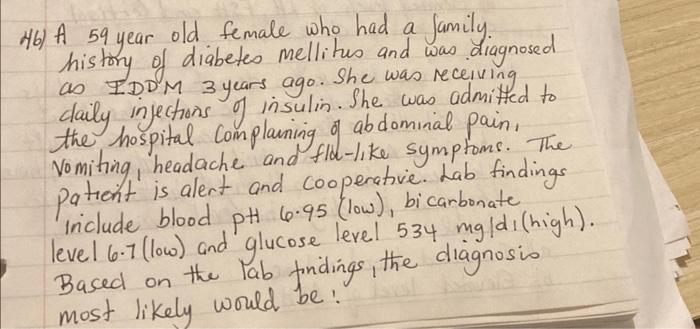 46) A 59 year old female who had a family
history of diabetes mellitus and was diagnosed
as IDDM 3 years ago. She was receiving
daily injections of insulin. She was admitted to
the hospital complaining of abdominal pain,
vomiting, headache and flu-like symptoms. The
patient is alert and cooperative. Lab findings
include blood pH 6.95 (low), bicarbonate
level 6.7 (low) and glucose level 534 mg/dl (high).
Based on the lab findings, the diagnosis
most likely would be: